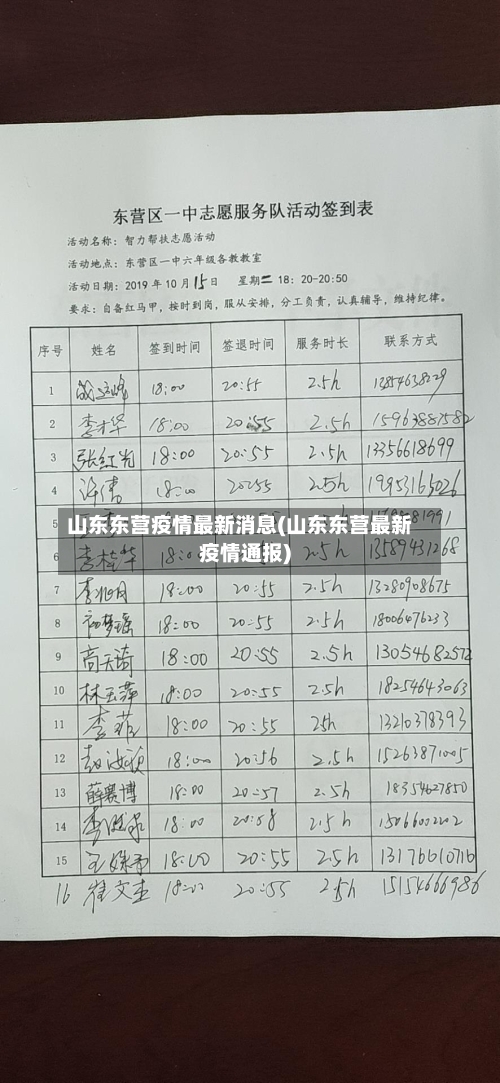 东营区一中志愿服务队活动签到表
活动名称：智力帮扶志愿活动
活动地点：东营区一中六年级各教教室
活动日期：2019年10月15日 星期二 18：20-20:50
要求：自备红马甲，按时到岗，服从安排，分工负责，认真辅导，维持纪律。
序号 姓名 签到时间 签退时间 服务时长 联系方式
1 18:00 20:55 2.5h 13854638229
2 李才华 18:00 20:55 2.5h 15963887582
3 张红光 18:00 20:55 2.5h 13356618699
4 许倩 18:00 20:55 2.5h 19953165026
山东东营疫情最新消息(山东东营最新
疫情通报)
6 李桂华 18:0 2.5h 13589431268
7 李旭月 18:00 20:55 2.5h 13280908675
8 初梦瑶 18:00 20:55 2.5h 18006476233
9 高天琦 18:00 20:55 2.5h 13054682572
10 林玉萍 18:00 20:55 2.5h 18254643063
11 李菲 18:00 20:55 25h 13210378393
12 18:00 20:56 2.5h 15263871005
13 薛赛博 18:00 20:57 2.5h 18354627850
14 18:00 20:58 2.5h 15066002202
15 18:00 20:55 2.5h 13176610716
16 崔文杰 18:00 20:55 2.5h 15154666986